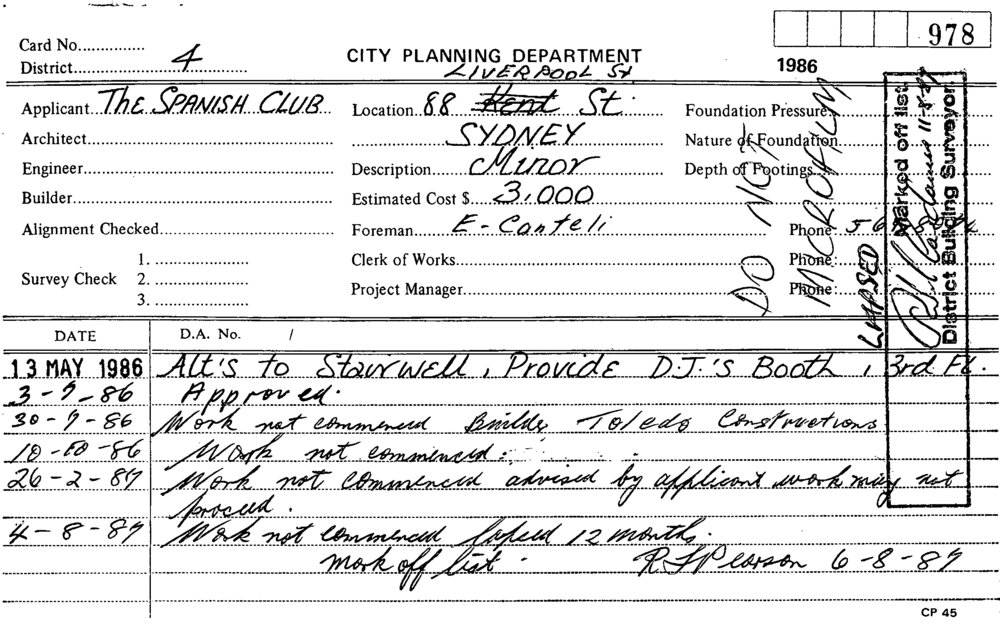 978
Card No.
District 4
CITY PLANNING DEPARTMENT
1986
LIVERPOOL St
Applicant The SPANISH CLUB
Location 88 Kent St.
Foundation Pressure
Architect
SYDNEY
Nature of Foundation
Engineer
Description Minor
Depth of Footings
Builder
Estimated Cost $ 3,000
Alignment Checked
Foreman E-Canteli
Phone
Survey Check
1.
2.
3.
Clerk of Works
Phone:
Project Manager
Phone:
DO NOT
MICROFILM
LAPSED
Marked off list
11-8-87
District Building Surveyor
DATE
D.A. No. /
13 MAY 1986 Alt's to Stairwell, Provide D.J.'s Booth, 3rd FL.
3-7-86 Approved.
30-7-86 Work not commenced Builder Toledo Constructions
10-10-86 Work not commenced.
26-2-87 Work not commenced advised by applicant work may not
proceed.
4-8-87 Work not commenced lapsed 12 months.
mark off list - Pearson 6-8-87
CP 45